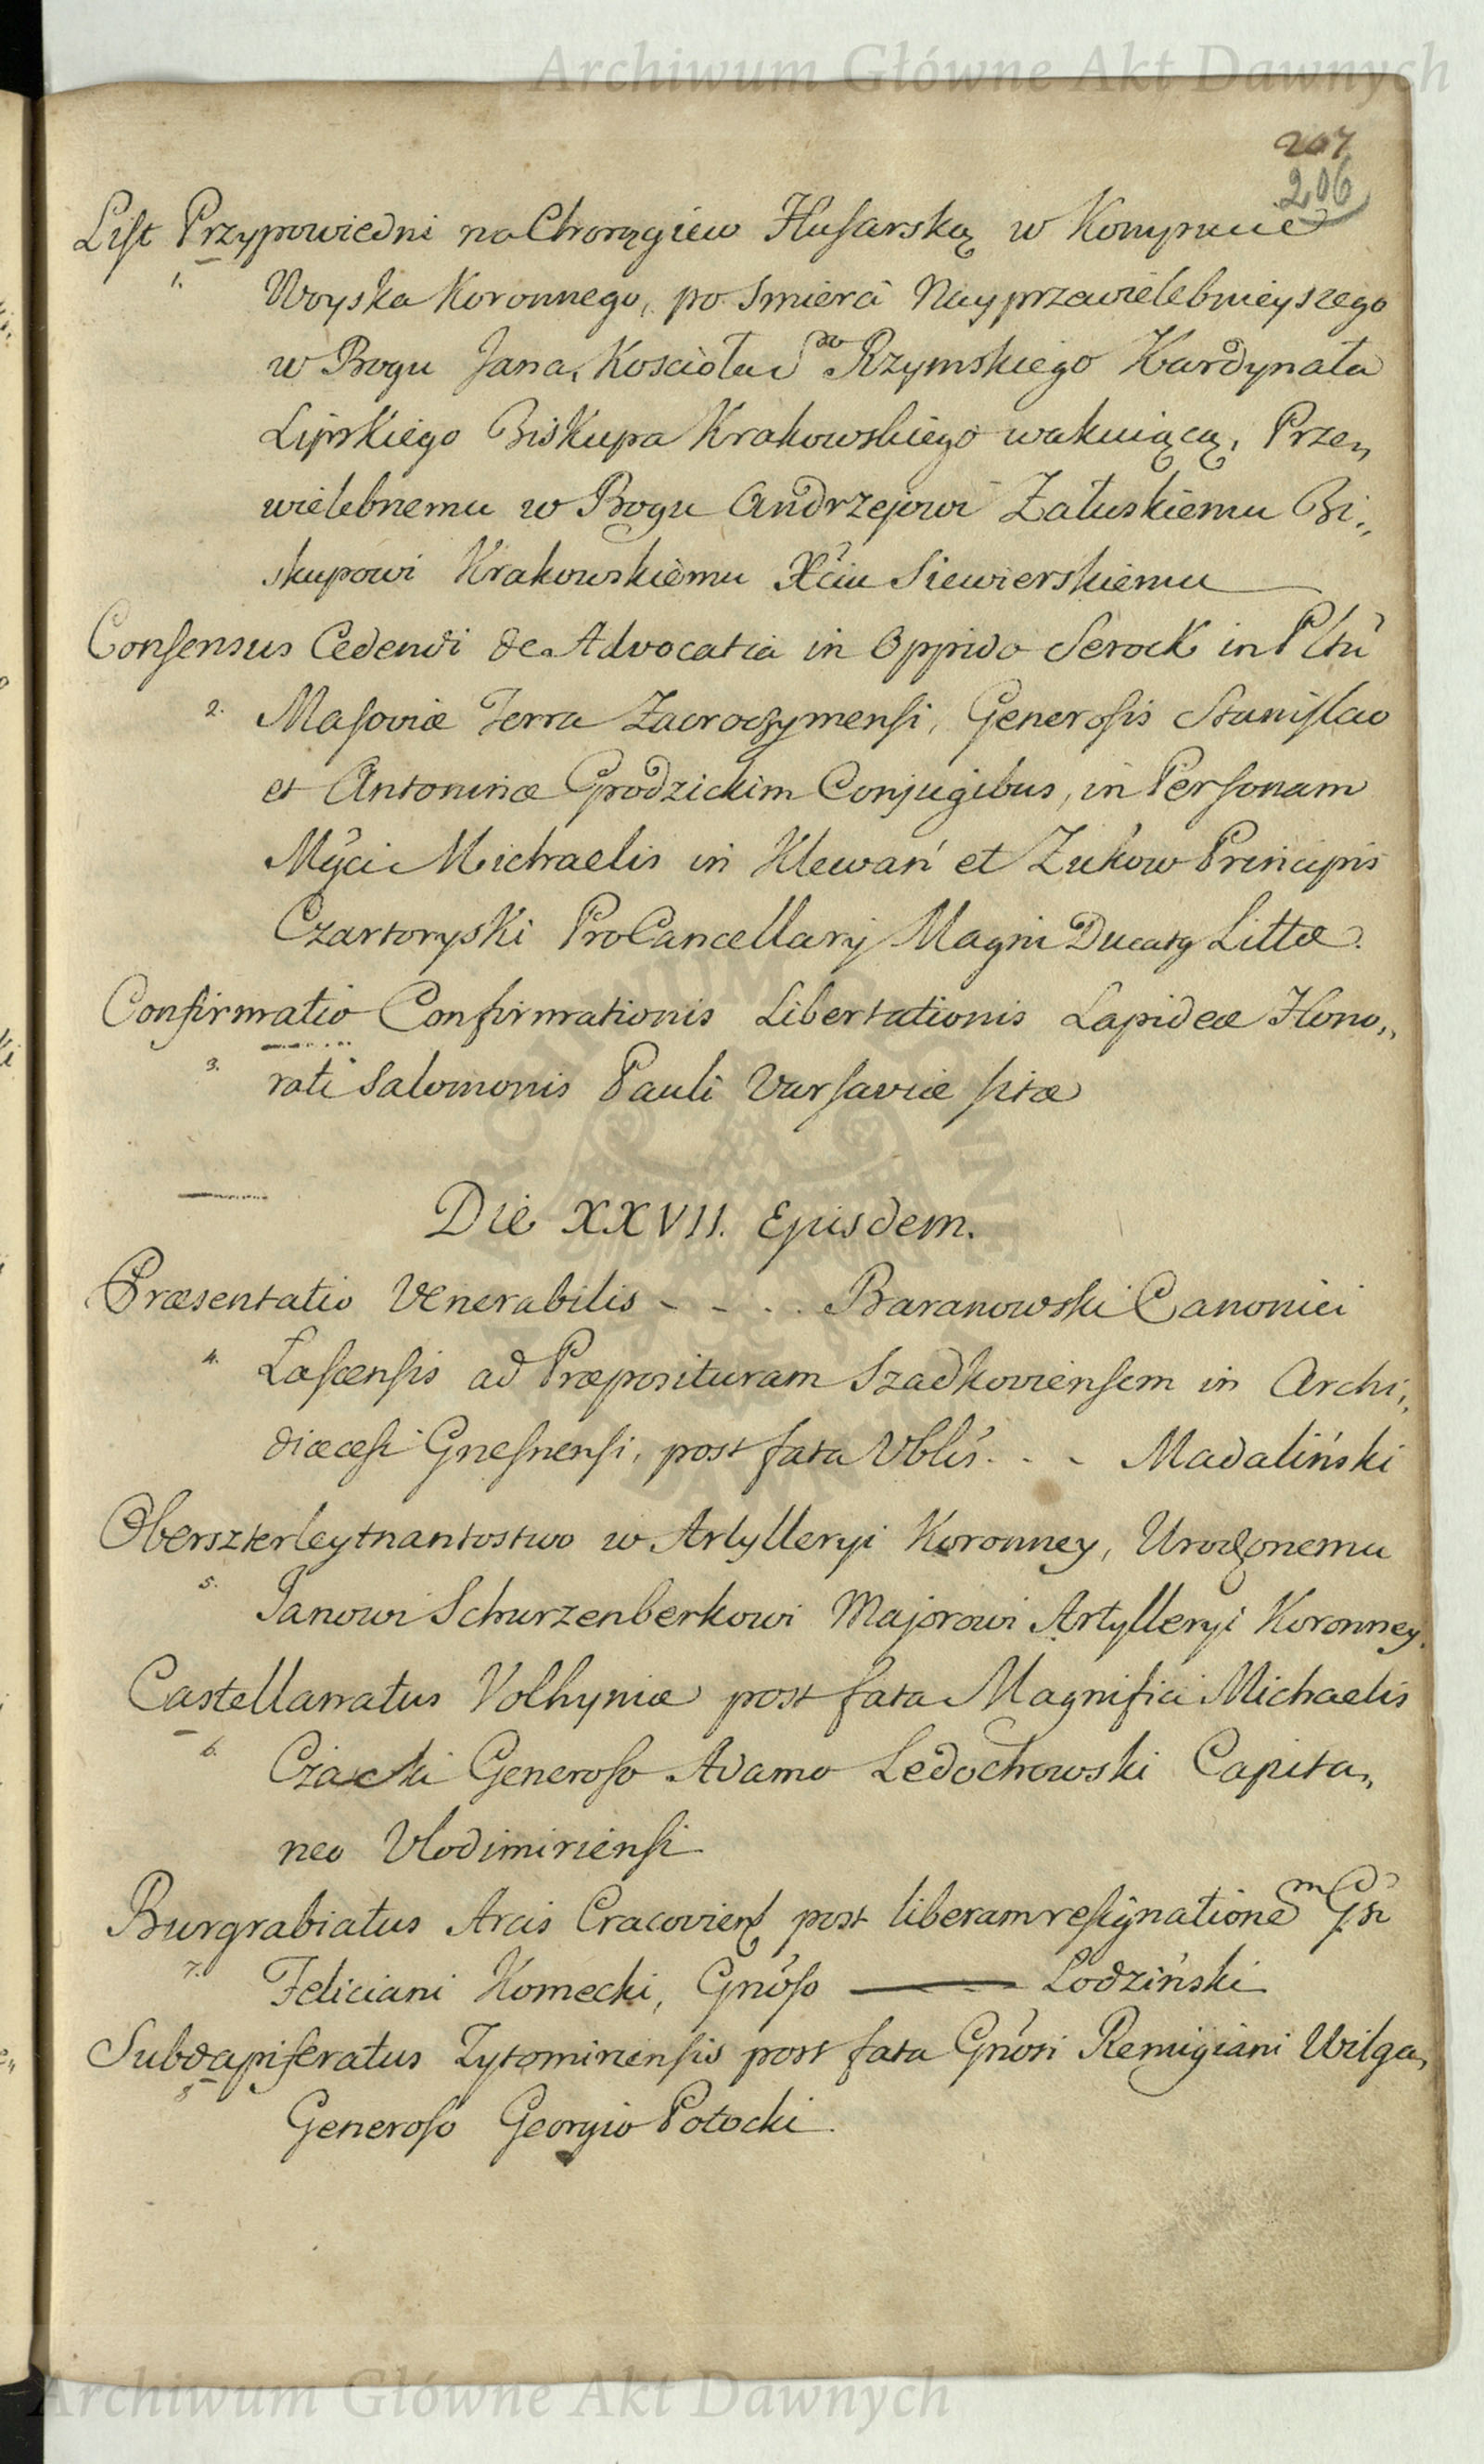 Archiwum Główne Akt Dawnych
207
206
List Przypowiedni na Chorągiew Husarską w Komputcie
1. Woyska Koronnego, po Smierci Nayprzewielebnieyszego
w Bogu Jana, Kościoła Sgo Rzymskiego Kardynała
Lipskiego Biskupa Krakowskiego wakuiącą, Prze„
wielebnemu w Bogu Andrzejowi Załuskiemu Bi„
skupowi Krakowskiemu Xciu Siewierskiemu
Consensus Cedendi de Advocatia in Oppido Serock in Pltu
2. Masoviæ Terra Zacroczymensi, Generosis Stanislao
et Antoninæ Grodzickim Conjugibus, in Personam
Mgci Michaelis in Klewań et Zukow Principis
Czartoryski ProCancellarij Magni Ducatg Littæ.
Confirmatio Confirmationis Libertationis Lapideæ Hono„
3. rati Salomonis Pauli Varsaviæ sitæ
Die XXVII. Ejusdem.
Præsentatio Venerabilis - - . . Baranowski Canonici
4. Lascensis ad Præposituram Szadkoviensem in Archi„
diæcesi Gnesnensi, post fata Vblis . . - Madaliński
Oberszterleytnantostwo w Artylleryi Koronney, Urodzonemu
5. Janowi Schurzenberkowi Majorowi Artylleryi Koronney.
Castellanatus Volhyniæ post fata Magnifici Michaelis
6. Czacki Generoso Adamo Ledochowski Capita„
neo Vlodimiriensi
Burgrabiatus Arcis Cracovien post liberam resignationem Gsi
7. Feliciani Komecki, Gnoso — Lodziński
Subdapiferatus Zytomiriensis post fata Gnosi Remigiani Wilga,
8 Generoso Georgio Potocki
Archiwum Główne Akt Dawnych